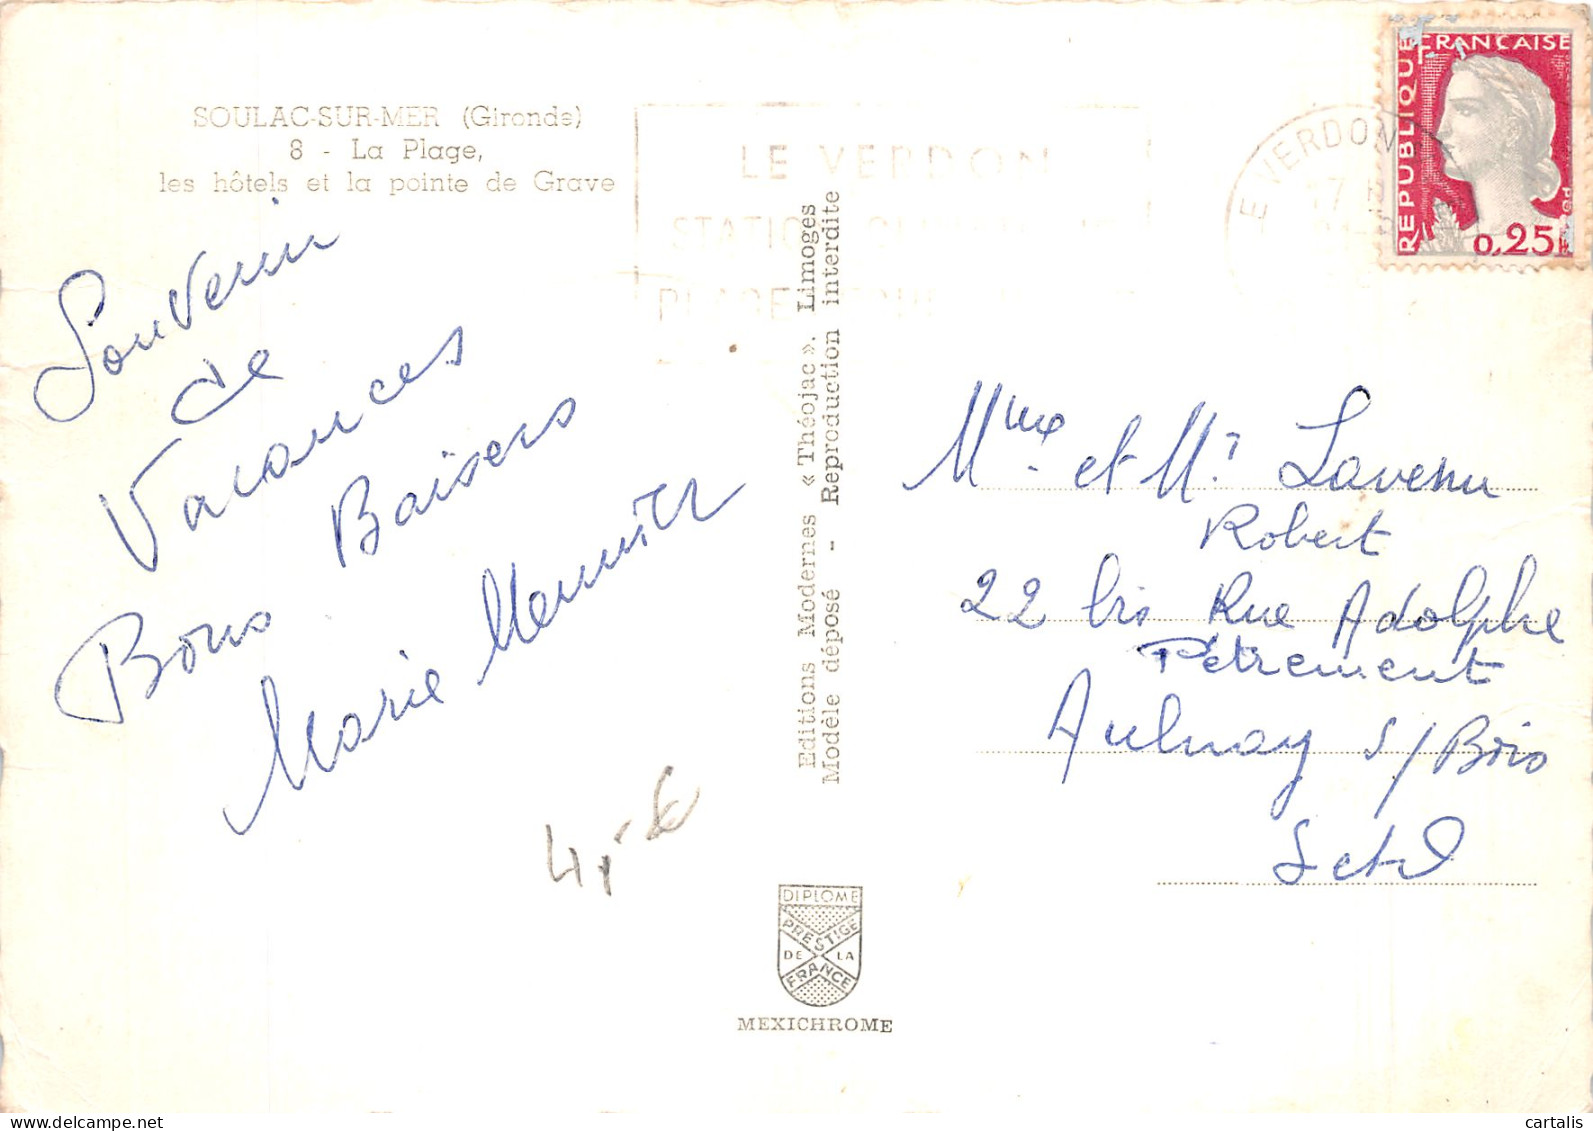 SOULAC-SUR-MER (Gironde)
8 - La Plage,
les hôtels et la pointe de Grave
Souvenir
de
Vacances
Bons Baisers
Marie Meunier
4,-€
LE VERDON
STATION
PLAGE
Editions Modernes « Théojac ». Limoges
Modèle déposé - Reproduction interdite
DIPLOME
PRESTIGE
DE LA
FRANCE
MEXICHROME
E VERDON
17 H
REPUBLIQUE
FRANCAISE
0,25F
Mme et Mr Lavenu
Robert
22 bis Rue Adolphe
Pétrement
Aulnay s/Bois
Set O
cartalis